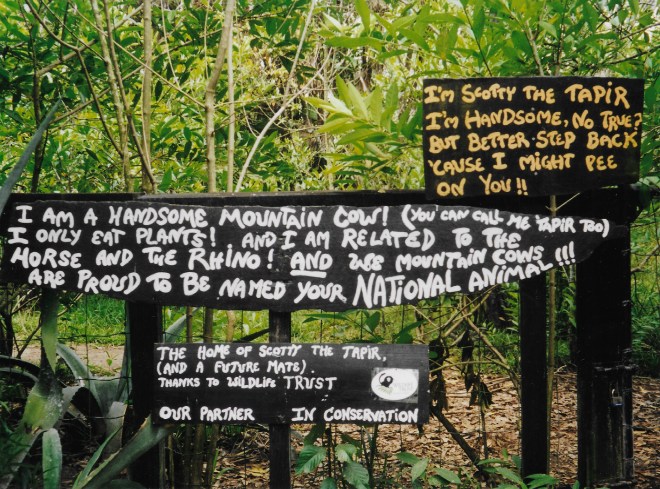 I'M SCOTTY THE TAPIR
I'M HANDSOME, NO TRUE?
BUT BETTER STEP BACK
'CAUSE I MIGHT PEE
ON YOU!!
I AM A HANDSOME MOUNTAIN COW! (YOU CAN CALL ME TAPIR TOO)
I ONLY EAT PLANTS! AND I AM RELATED TO THE
HORSE AND THE RHINO! AND WE MOUNTAIN COWS
ARE PROUD TO BE NAMED YOUR NATIONAL ANIMAL!!!
THE HOME OF SCOTTY THE TAPIR,
(AND A FUTURE MATE).
THANKS TO WILDLIFE TRUST
OUR PARTNER IN CONSERVATION